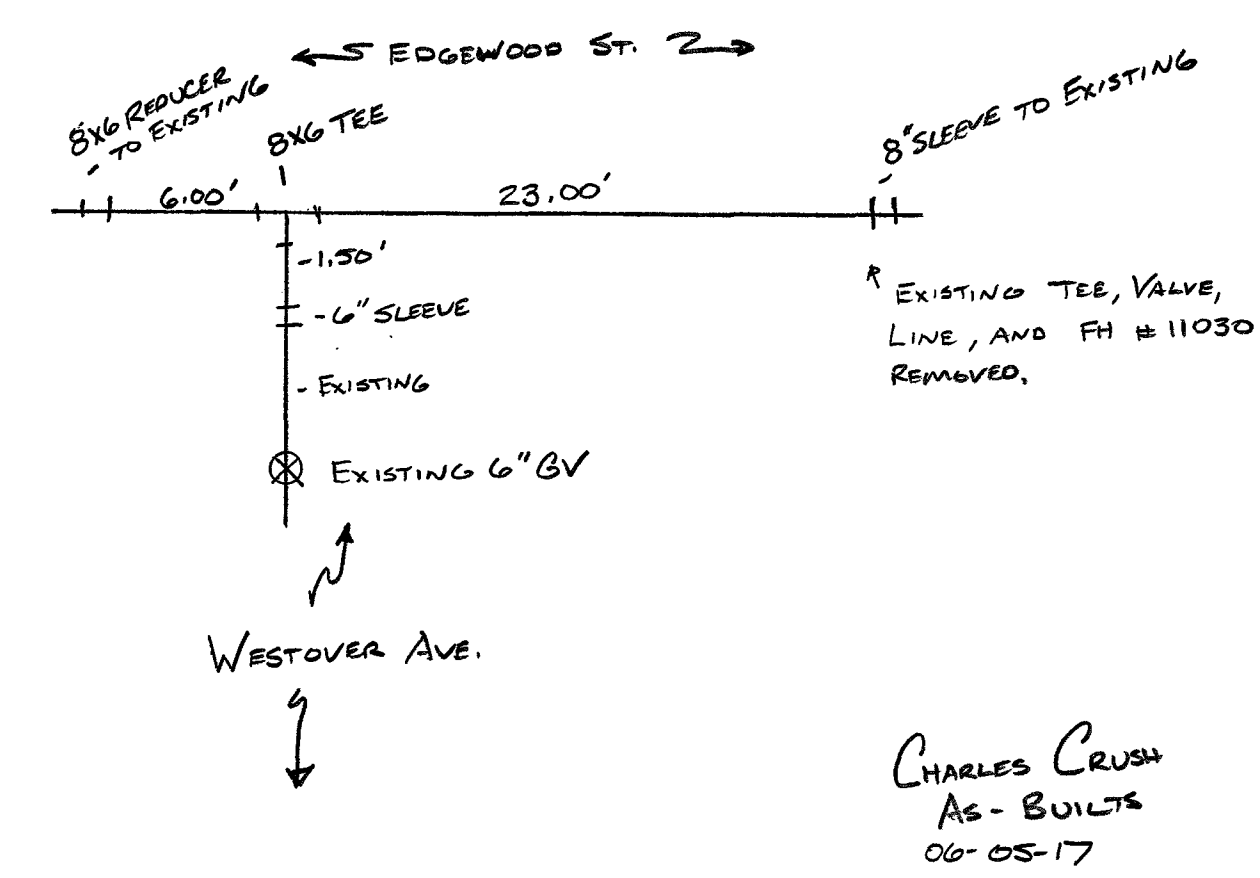 EDGEWOOD ST.
8X6 REDUCER
- TO EXISTING
8X6 TEE
8" SLEEVE TO EXISTING
6.00'
23.00'
-1.50'
- 6" SLEEVE
- EXISTING
EXISTING 6" GV
* EXISTING TEE, VALVE,
LINE, AND FH # 11030
REMOVED.
WESTOVER AVE.
CHARLES CRUSH
AS-BUILTS
06-05-17